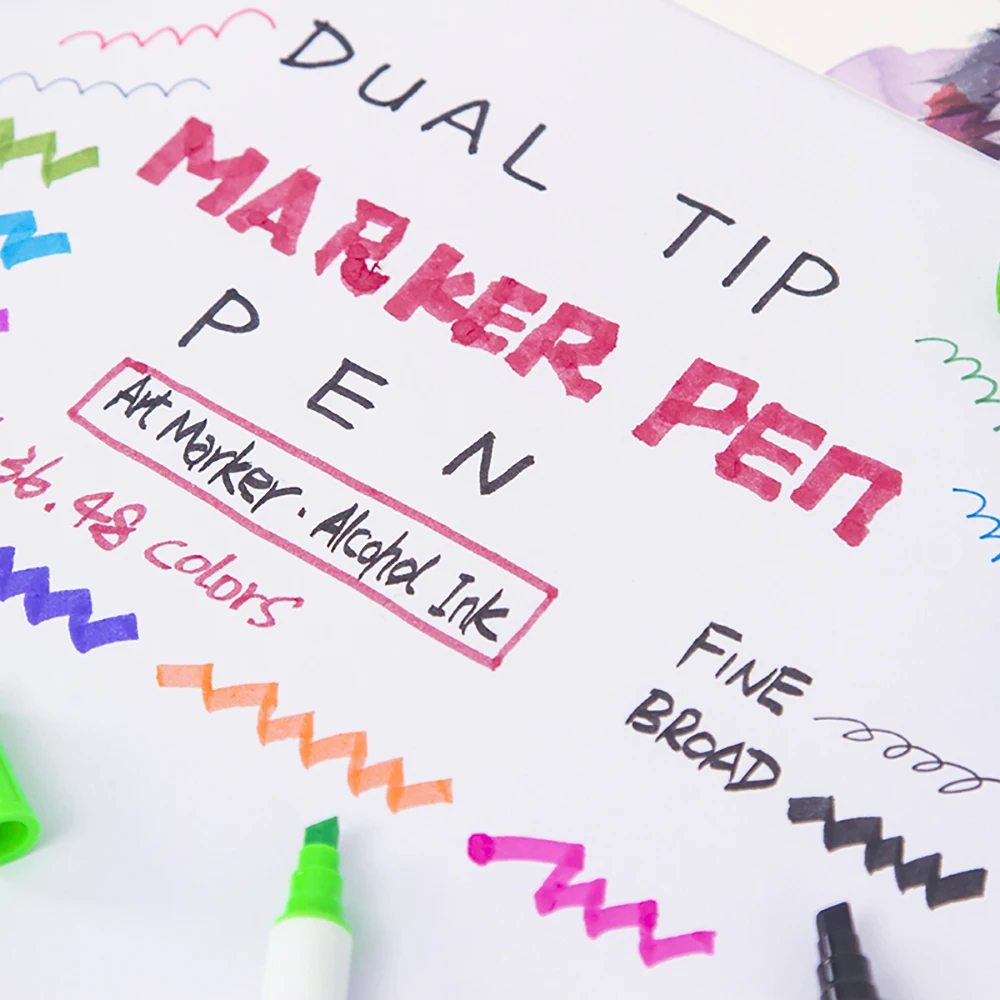 DUAL TIP
MARKER PEN
PEN
Art Marker. Alcohol Ink
36. 48 colors
FINE
BROAD